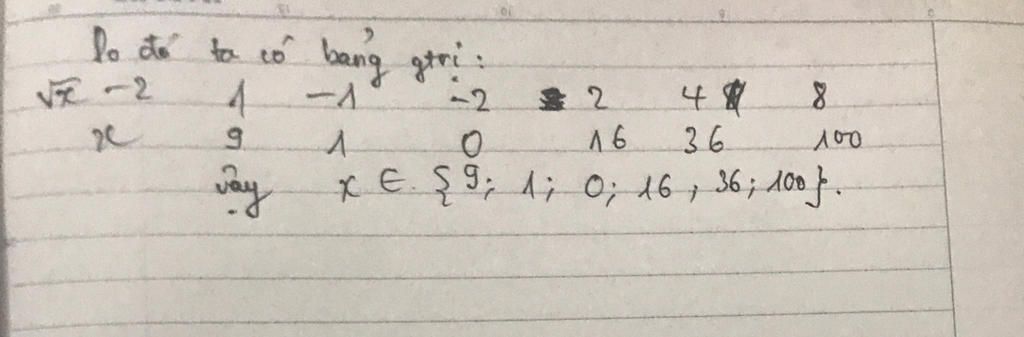 Do đó ta có bảng gtrị:
√x - 2 1 -1 -2 2 4 8
x 9 1 0 16 36 100
vậy x ∈ {9; 1; 0; 16, 36; 100}.